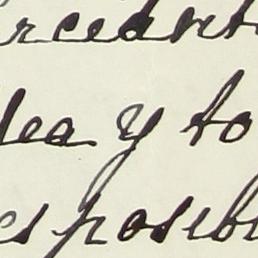 rcedante
dea y to
es posibl